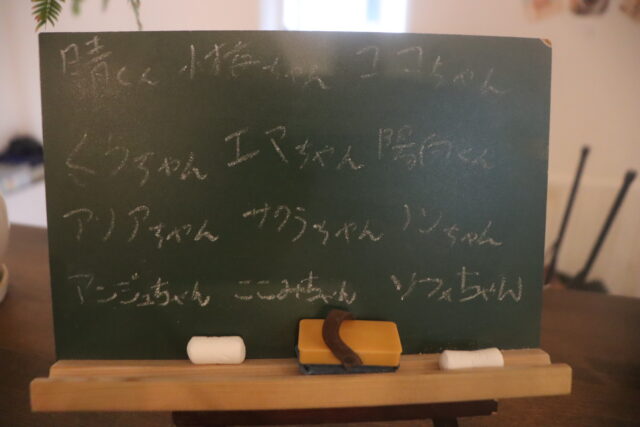 晴くん 小梅ちゃん ココちゃん
くうちゃん エマちゃん 陽向くん
アリアちゃん サクラちゃん ノンちゃん
アンジュちゃん ここみちゃん ソフィちゃん